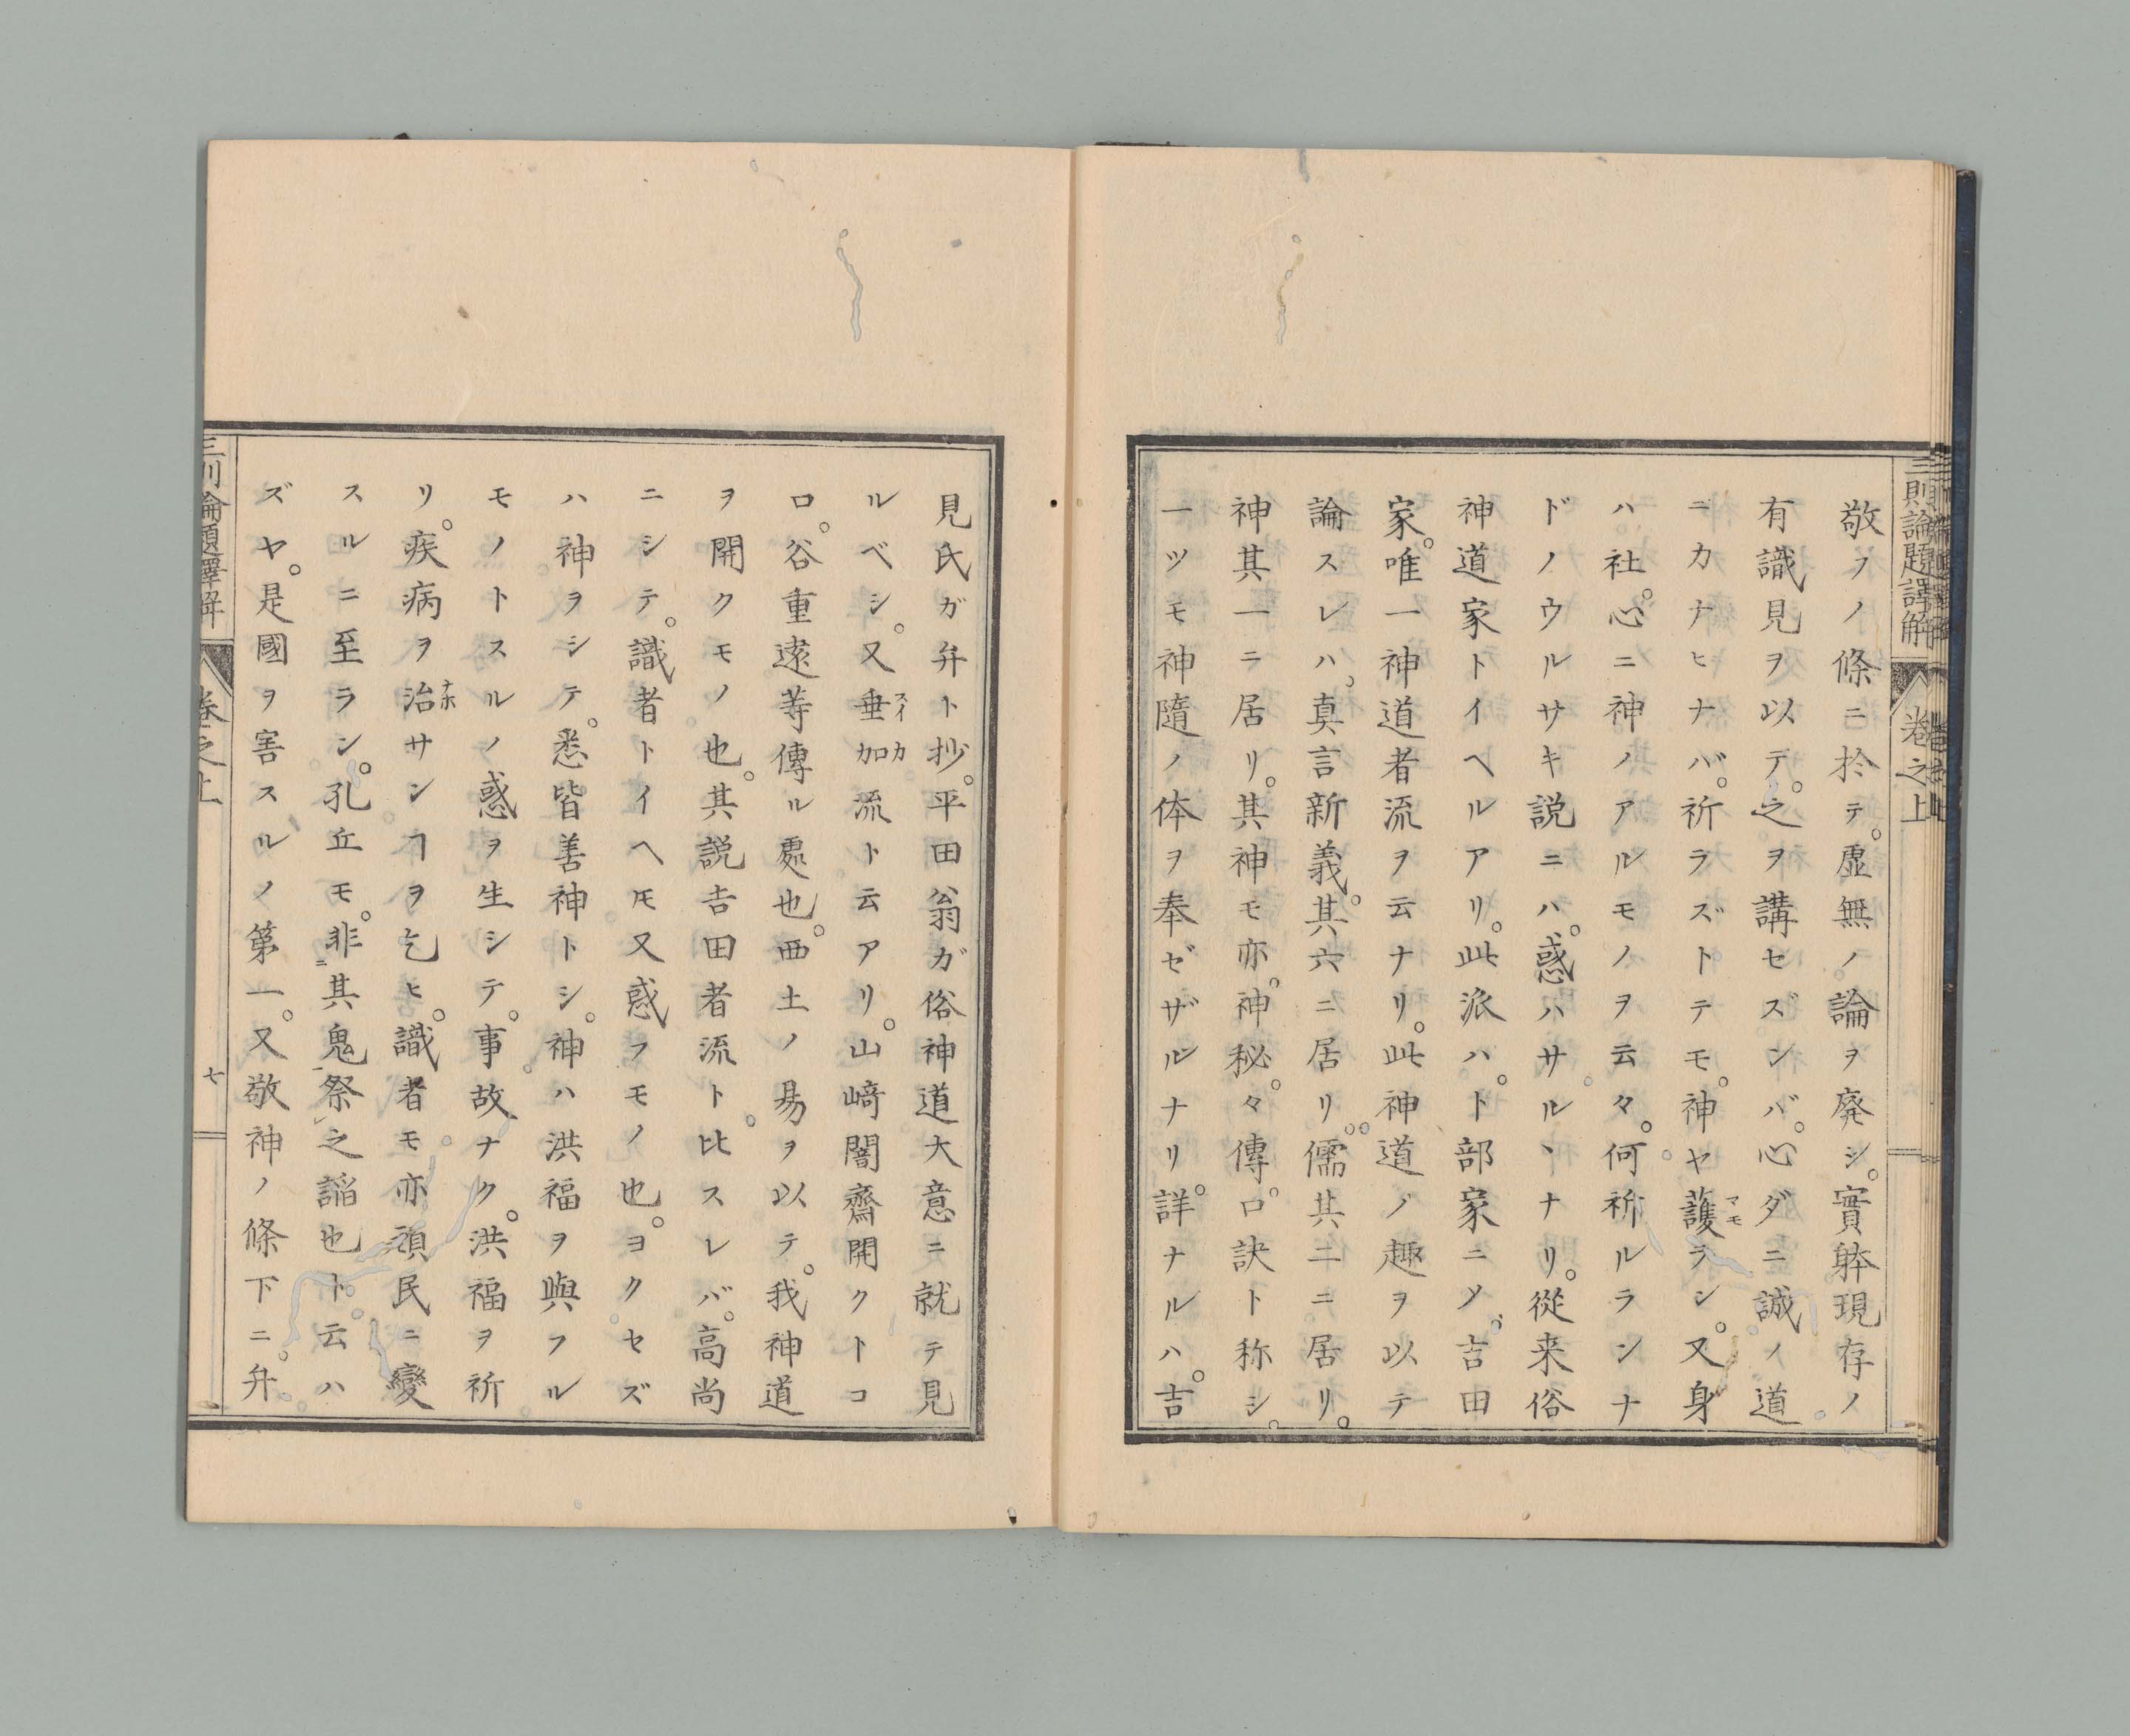 三則論題譯解 卷之上
敬フノ條ニ於テ。虚無ノ論ヲ廃シ。實躰現存ノ
有識見ヲ以テ。之ヲ講セズンバ。心ダニ誠ノ道
ニカナヒナバ。祈ラズトテモ。神ヤ護マモラン。又身
ハ社。心ニ神ノアルモノヲ云々。何祈ルランナ
ドノウルサキ説ニハ。惑ハサルヽナリ。從来俗
神道家トイヘルアリ。此派ハ。ト部家ニソ。吉田
家。唯一神道者流ヲ云ナリ。此神道ノ趣ヲ以テ
論スレハ、真言新義。其六ニ居リ。儒其二ニ居リ。
神其一ニ居リ。其神モ亦。神秘。々傳。口訣ト称シ。
一ツモ神隨ノ体ヲ奉ゼザルナリ。詳ナルハ。吉
見氏ガ弁ト抄。平田翁ガ俗神道大意ニ就テ見
ルベシ。又垂加スイカ流ト云アリ。山﨑闇齋開クトコ
ロ。谷重遠等傳ル處也。西土ノ易ヲ以テ。我神道
ヲ開クモノ也。其説吉田者流ト。比スレバ。高尚
ニシテ。識者トイヘ𪜈又惑フモノ也。ヨクセズ
ハ神ヲシテ。悉皆善神トシ。神ハ洪福ヲ與フル
モノトスルノ惑ヲ生シテ。事故ナク。洪福ヲ祈
リ。疾病ヲ治ナホサンヿヲ乞ヒ。識者モ亦頑民ニ變
スルニ至ラン。孔丘モ。非ニ其鬼祭之謟也ト。云ハ
ズヤ。是國ヲ害スルノ第一。又敬神ノ條下ニ。弁
三則論題譯解 卷之上 七